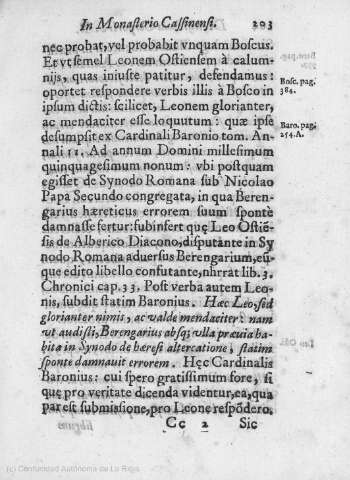 In Monasterio Cassinensi. 203
nec probat, vel probabit vnquam Boscus.
Et vt semel Leonem Ostiensem à calum-
nijs, quas iniuste patitur, defendamus:
oportet respondere verbis illis à Bosco in
Bosc. pag.
384.
ipsum dictis: scilicet, Leonem glorianter,
ac mendaciter esse loquutum: quæ ipse
desumpsit ex Cardinali Baronio tom. An-
Baro. pag.
254.A.
nali 11. Ad annum Domini millesimum
quinquagesimum nonum: vbi postquam
egisset de Synodo Romana sub Nicolao
Papa Secundo congregata, in qua Beren-
garius hæreticus errorem suum spontè
damnasse fertur: subinfert quę Leo Ostiē-
sis de Alberico Diacono, disputante in Sy
nodo Romana aduersus Berengarium, eū-
que edito libello confutante, nhrrat lib. 3.
Chronici cap. 33. Post verba autem Leo-
nis, subdit statim Baronius. Hæc Leo, sed
glorianter nimis, ac valde mendaciter: nam
vt audisti, Berengarius absq; vlla præuia ha-
bita in Synodo de hæresi altercatione, statim
sponte damnauit errorem. Hęc Cardinalis
Baronius: cui spero gratissimum fore, si
quę pro veritate dicenda videntur, ea, qua
par est submissione, pro Leone respōdero.
Cc 2 Sic
(c) Comunidad Autónoma de La Rioja